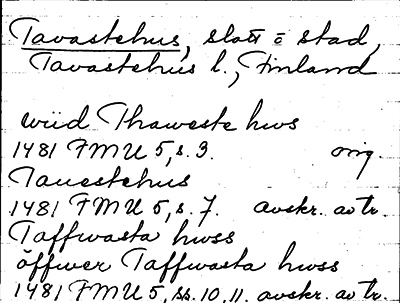 Tavastehus, slott o stad,
Tavastehus l., Finland
wiid Thaweste hws
1481 FMU 5, s. 3. orig.
Tauestehus
1481 FMU 5, s. 7. avskr. av tr.
Taffwasta hwss
öffwer Taffwasta hwss
1481 FMU 5, ss. 10, 11. avskr. av tr.